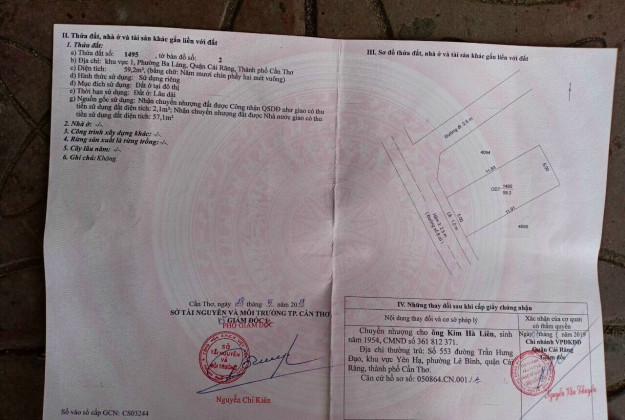 II. Thửa đất, nhà ở và tài sản khác gắn liền với đất
1. Thửa đất:
a) Thửa đất số: 1495, tờ bản đồ số: 2
b) Địa chỉ: khu vực 1, Phường Ba Láng, Quận Cái Răng, Thành phố Cần Thơ
c) Diện tích: 59,2m², (bằng chữ: Năm mươi chín phẩy hai mét vuông)
d) Hình thức sử dụng: Sử dụng riêng
đ) Mục đích sử dụng: Đất ở tại đô thị
e) Thời hạn sử dụng: Đất ở: Lâu dài
g) Nguồn gốc sử dụng: Nhận chuyển nhượng đất được Công nhận QSDĐ như giao có thu
tiền sử dụng đất diện tích: 2,1m²; Nhận chuyển nhượng đất được Nhà nước giao có thu
tiền sử dụng đất diện tích: 57,1m²
2. Nhà ở: -/-
3. Công trình xây dựng khác: -/-
4. Rừng sản xuất là rừng trồng: -/-
5. Cây lâu năm: -/-
6. Ghi chú: Không
Cần Thơ, ngày
SỞ TÀI NGUYÊN VÀ MÔI TRƯỜNG TP. CẦN THƠ
GIÁM ĐỐC
PHÓ GIÁM ĐỐC
SỞ
TÀI NGUYÊN
VÀ
MÔI TRƯỜNG
Nguyễn Chí Kiên
Số vào sổ cấp GCN: CS03244
III. Sơ đồ thửa đất, nhà ở và tài sản khác gắn liền với đất
4094
5.00
11.83
ODT
1495
59.2
5.00
11.81
IV. Những thay đổi sau khi cấp giấy chứng nhận
Nội dung thay đổi và cơ sở pháp lý
Xác nhận của cơ quan
có thẩm quyền
Chuyển nhượng cho ông Kim Hà Liên, sinh
năm 1954, CMND số 361 812 371.
Địa chỉ thường trú: Số 553 đường Trần Hưng
Đạo, khu vực Yên Hạ, phường Lê Bình, quận Cái
Răng, thành phố Cần Thơ.
Căn cứ hồ sơ số: 050864.CN.001
2019
Chi nhánh VPĐKĐĐ
Quận Cái Răng
Giám đốc